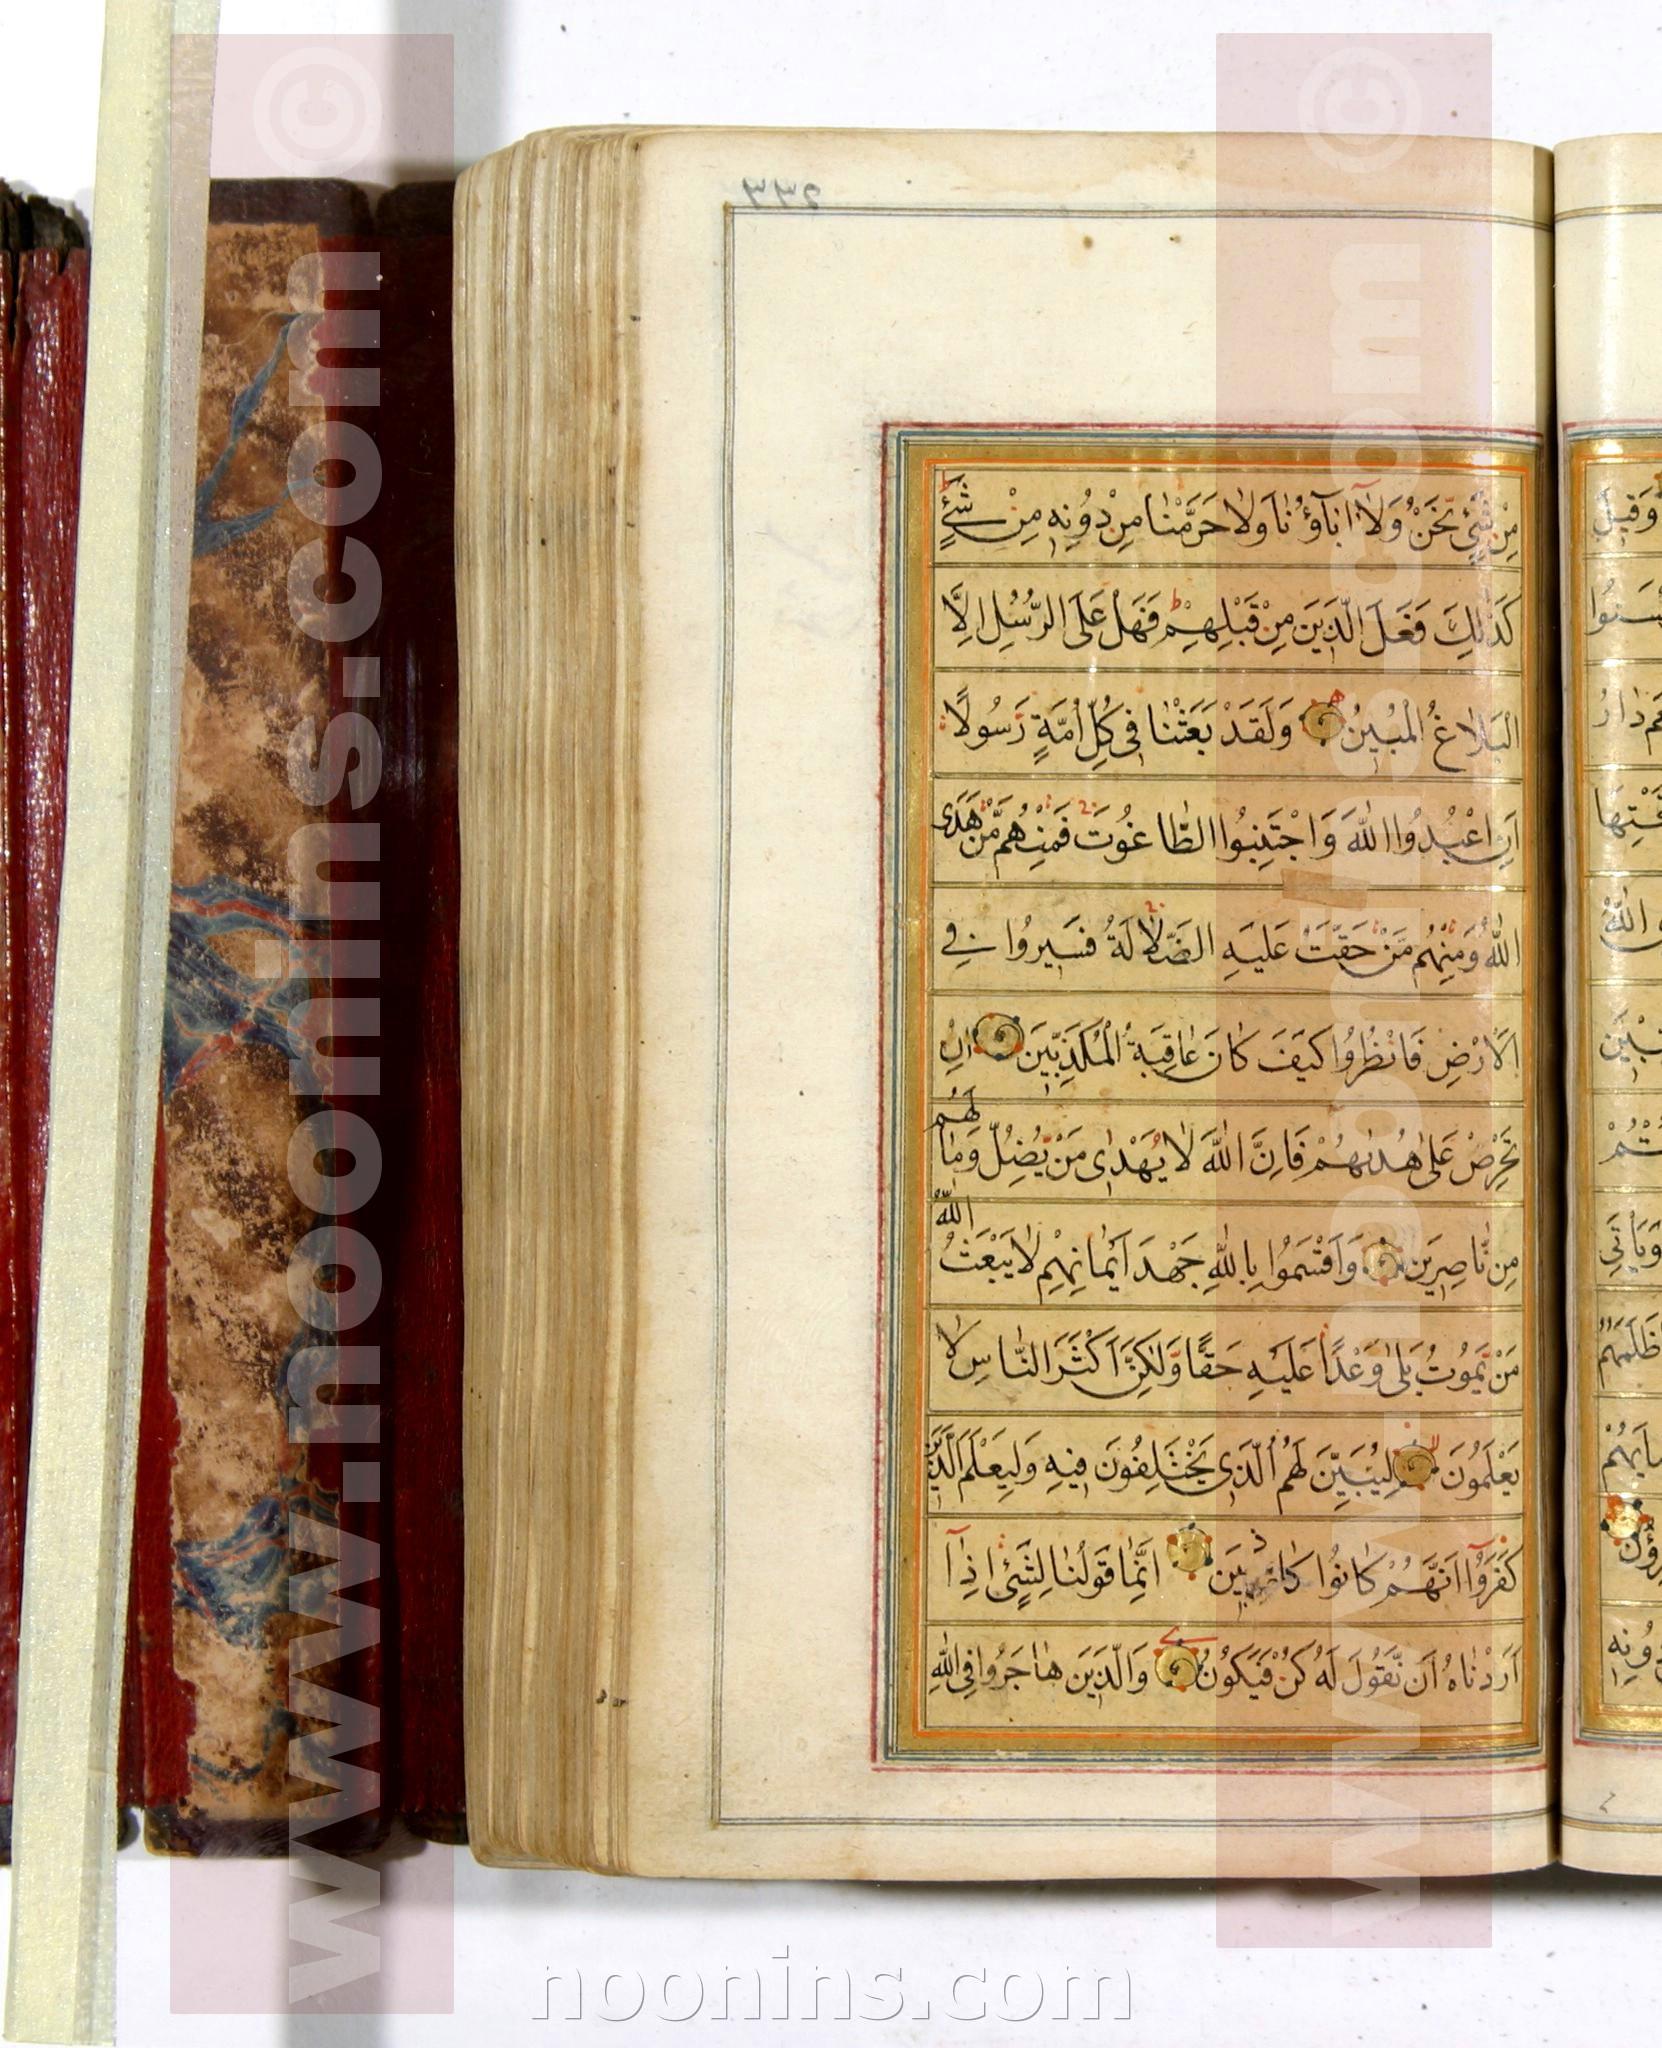 مِنْ شَیْءٍ نَحْنُ وَلَا آبَاؤُنَا وَلَا حَرَّمْنَا مِنْ دُونِهِ مِنْ شَیْءٍ
كَذٰلِكَ فَعَلَ الَّذِینَ مِنْ قَبْلِهِمْ فَهَلْ عَلَی الرُّسُلِ اِلَّا
الْبَلَاغُ الْمُبِینُ وَلَقَدْ بَعَثْنَا فِی كُلِّ اُمَّةٍ رَسُولًا
اَنِ اعْبُدُوا اللّٰهَ وَاجْتَنِبُوا الطَّاغُوتَ فَمِنْهُمْ مَنْ هَدَی
اللّٰهُ وَمِنْهُمْ مَنْ حَقَّتْ عَلَیْهِ الضَّلَالَةُ فَسِیرُوا فِی
الْاَرْضِ فَانْظُرُوا كَیْفَ كَانَ عَاقِبَةُ الْمُكَذِّبِینَ اِنْ
تَحْرِصْ عَلٰی هُدٰیهُمْ فَاِنَّ اللّٰهَ لَا یَهْدِی مَنْ یُضِلُّ وَمَا لَهُمْ
مِنْ نَاصِرِینَ وَاَقْسَمُوا بِاللّٰهِ جَهْدَ اَیْمَانِهِمْ لَا یَبْعَثُ اللّٰهُ
مَنْ یَمُوتُ بَلٰی وَعْدًا عَلَیْهِ حَقًّا وَلٰكِنَّ اَكْثَرَ النَّاسِ لَا
یَعْلَمُونَ لِیُبَیِّنَ لَهُمُ الَّذِی یَخْتَلِفُونَ فِیهِ وَلِیَعْلَمَ الَّذِینَ
كَفَرُوا اَنَّهُمْ كَانُوا كَاذِبِینَ اِنَّمَا قَوْلُنَا لِشَیْءٍ اِذَا
اَرَدْنَاهُ اَنْ نَقُولَ لَهُ كُنْ فَیَكُونُ وَالَّذِینَ هَاجَرُوا فِی اللّٰهِ
© www.noonins.com
© www.noonins.com
noonins.com